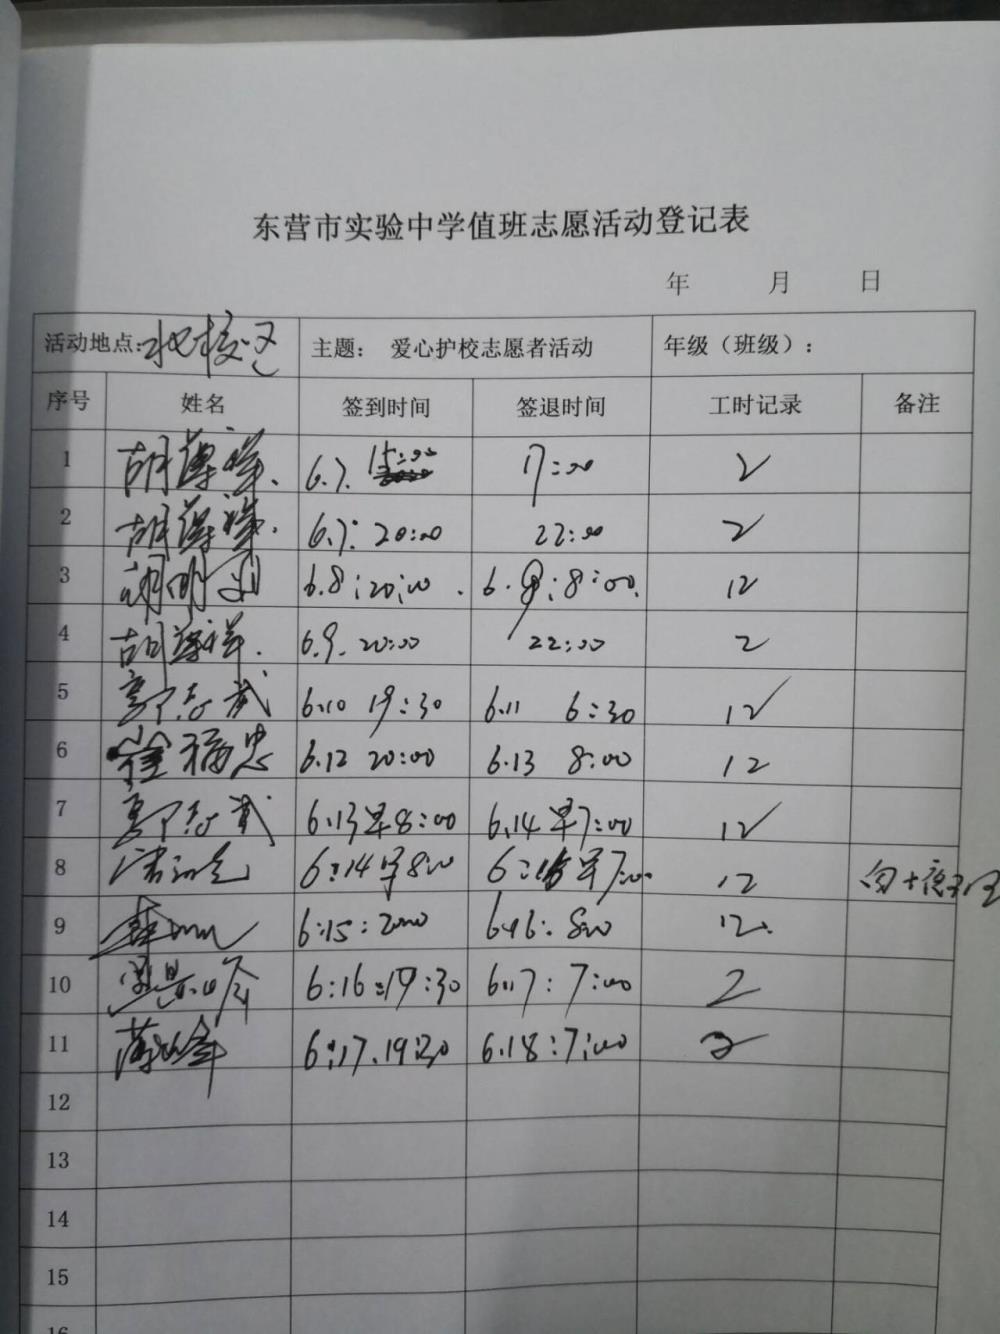 东营市实验中学值班志愿活动登记表
年 月 日
活动地点: 北校区 主题： 爱心护校志愿者活动 年级（班级）:
序号 姓名 签到时间 签退时间 工时记录 备注
1 胡 6.7. 15:00 17:00 2
2 胡 6.7: 20:00 22:00 2
3 胡明 6.8:20:00. 6.9:8:00. 12
4 胡 6.9. 20:00 22:00 2
5 郭志武 6.10 19:30 6.11 6:30 12
6 崔福忠 6.12 20:00 6.13 8:00 12
7 郭志武 6.13早8:00 6.14早7:00 12
8 6:14早8:00 6:15早7:00 12
9 6:15:2000 6.16:800 12.
10 6:16:19:30 6.17:7:00 2
11 6:17.19:30 6.18:7:00 2
12
13
14
15
16